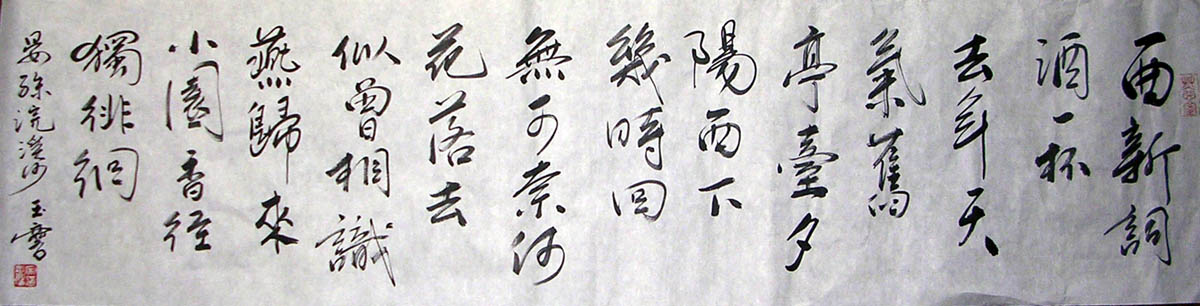 一曲新詞
酒一杯
去年天
氣舊
亭臺夕
陽西下
幾時回
無可奈何
花落去
似曾相識
燕歸來
小園香徑
獨徘徊
晏殊浣溪沙